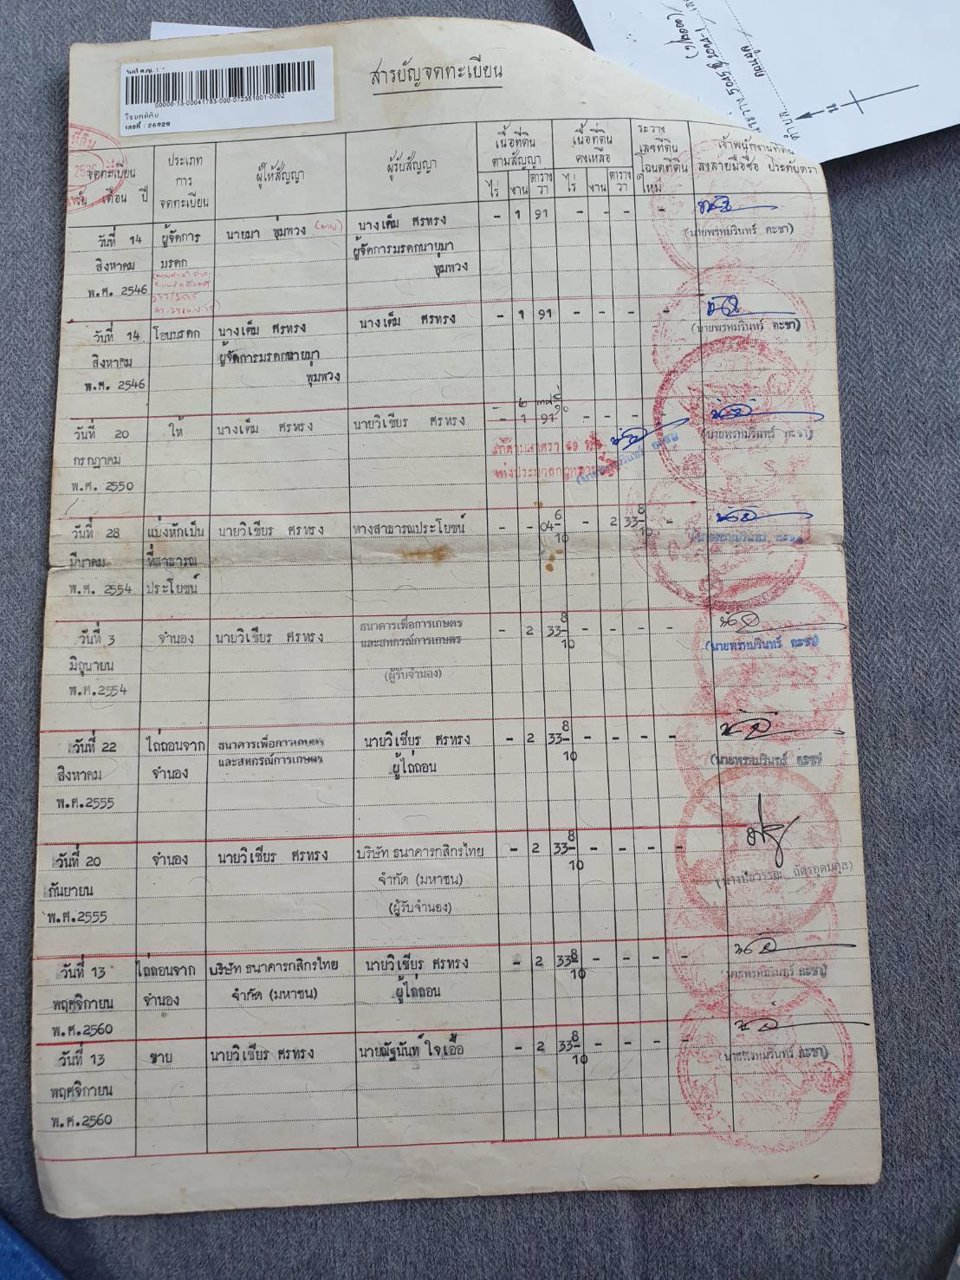 สารบัญจดทะเบียน
โฉนดที่ดิน
เลขที่ : 26929
จดทะเบียน
วัน เดือน ปี
ประเภท
การ
จดทะเบียน
ผู้ให้สัญญา
ผู้รับสัญญา
เนื้อที่ดิน
ตามสัญญา
ไร่ งาน ตาราง
วา
เนื้อที่ดิน
คงเหลือ
ไร่ งาน ตาราง
วา
ระวาง
เลขที่ดิน
โฉนดที่ดิน
ใหม่
เจ้าพนักงานที่ดิน
ลงลายมือชื่อ ประทับตรา
วันที่ 14 ผู้จัดการ นายมา พุ่มพวง (ตาย) นางเต็ม ศรทรง - 1 91 - - - -
สิงหาคม มรดก ผู้จัดการมรดกนายมา (นายพรหมรินทร์ คะชา)
พ.ศ. 2546 พุมพวง
วันที่ 14 โอนมรดก นางเต็ม ศรทรง นางเต็ม ศรทรง - 1 91 - - - -
สิงหาคม ผู้จัดการมรดกนายมา (นายพรหมรินทร์ คะชา)
พ.ศ. 2546 พุมพวง
วันที่ 20 ให้ นางเต็ม ศรทรง นายวิเชียร ศรทรง - 1 91 - - - -
กรกฎาคม (นายพรหมรินทร์ คะชา)
พ.ศ. 2550
วันที่ 28 แบ่งหักเป็น นายวิเชียร ศรทรง ทางสาธารณประโยชน์ - - 04 6/10 - 2 33 8/10 -
มีนาคม ที่สาธารณ (นายพรหมรินทร์ คะชา)
พ.ศ. 2554 ประโยชน์
วันที่ 3 จำนอง นายวิเชียร ศรทรง ธนาคารเพื่อการเกษตร - 2 33 8/10 - - - -
มิถุนายน และสหกรณ์การเกษตร (นายพรหมรินทร์ คะชา)
พ.ศ.2554 (ผู้รับจำนอง)
วันที่ 22 ไถ่ถอนจาก ธนาคารเพื่อการเกษตร นายวิเชียร ศรทรง - 2 33 8/10 - - - -
สิงหาคม จำนอง และสหกรณ์การเกษตร ผู้ไถ่ถอน (นายพรหมรินทร์ คะชา)
พ.ศ.2555
วันที่ 20 จำนอง นายวิเชียร ศรทรง บริษัท ธนาคารกสิกรไทย - 2 33 8/10 - - - -
กันยายน จำกัด (มหาชน)
พ.ศ.2555 (ผู้รับจำนอง)
วันที่ 13 ไถ่ถอนจาก บริษัท ธนาคารกสิกรไทย นายวิเชียร ศรทรง - 2 33 8/10 - - - -
พฤศจิกายน จำนอง จำกัด (มหาชน) ผู้ไถ่ถอน (นายพรหมรินทร์ คะชา)
พ.ศ.2560
วันที่ 13 ขาย นายวิเชียร ศรทรง นายณัฐนันท์ ใจเอื้อ - 2 33 8/10 - - - -
พฤศจิกายน (นายพรหมรินทร์ คะชา)
พ.ศ.2560